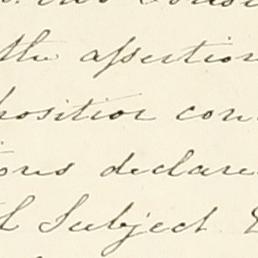 the assertion
position con
ions declare
Subject